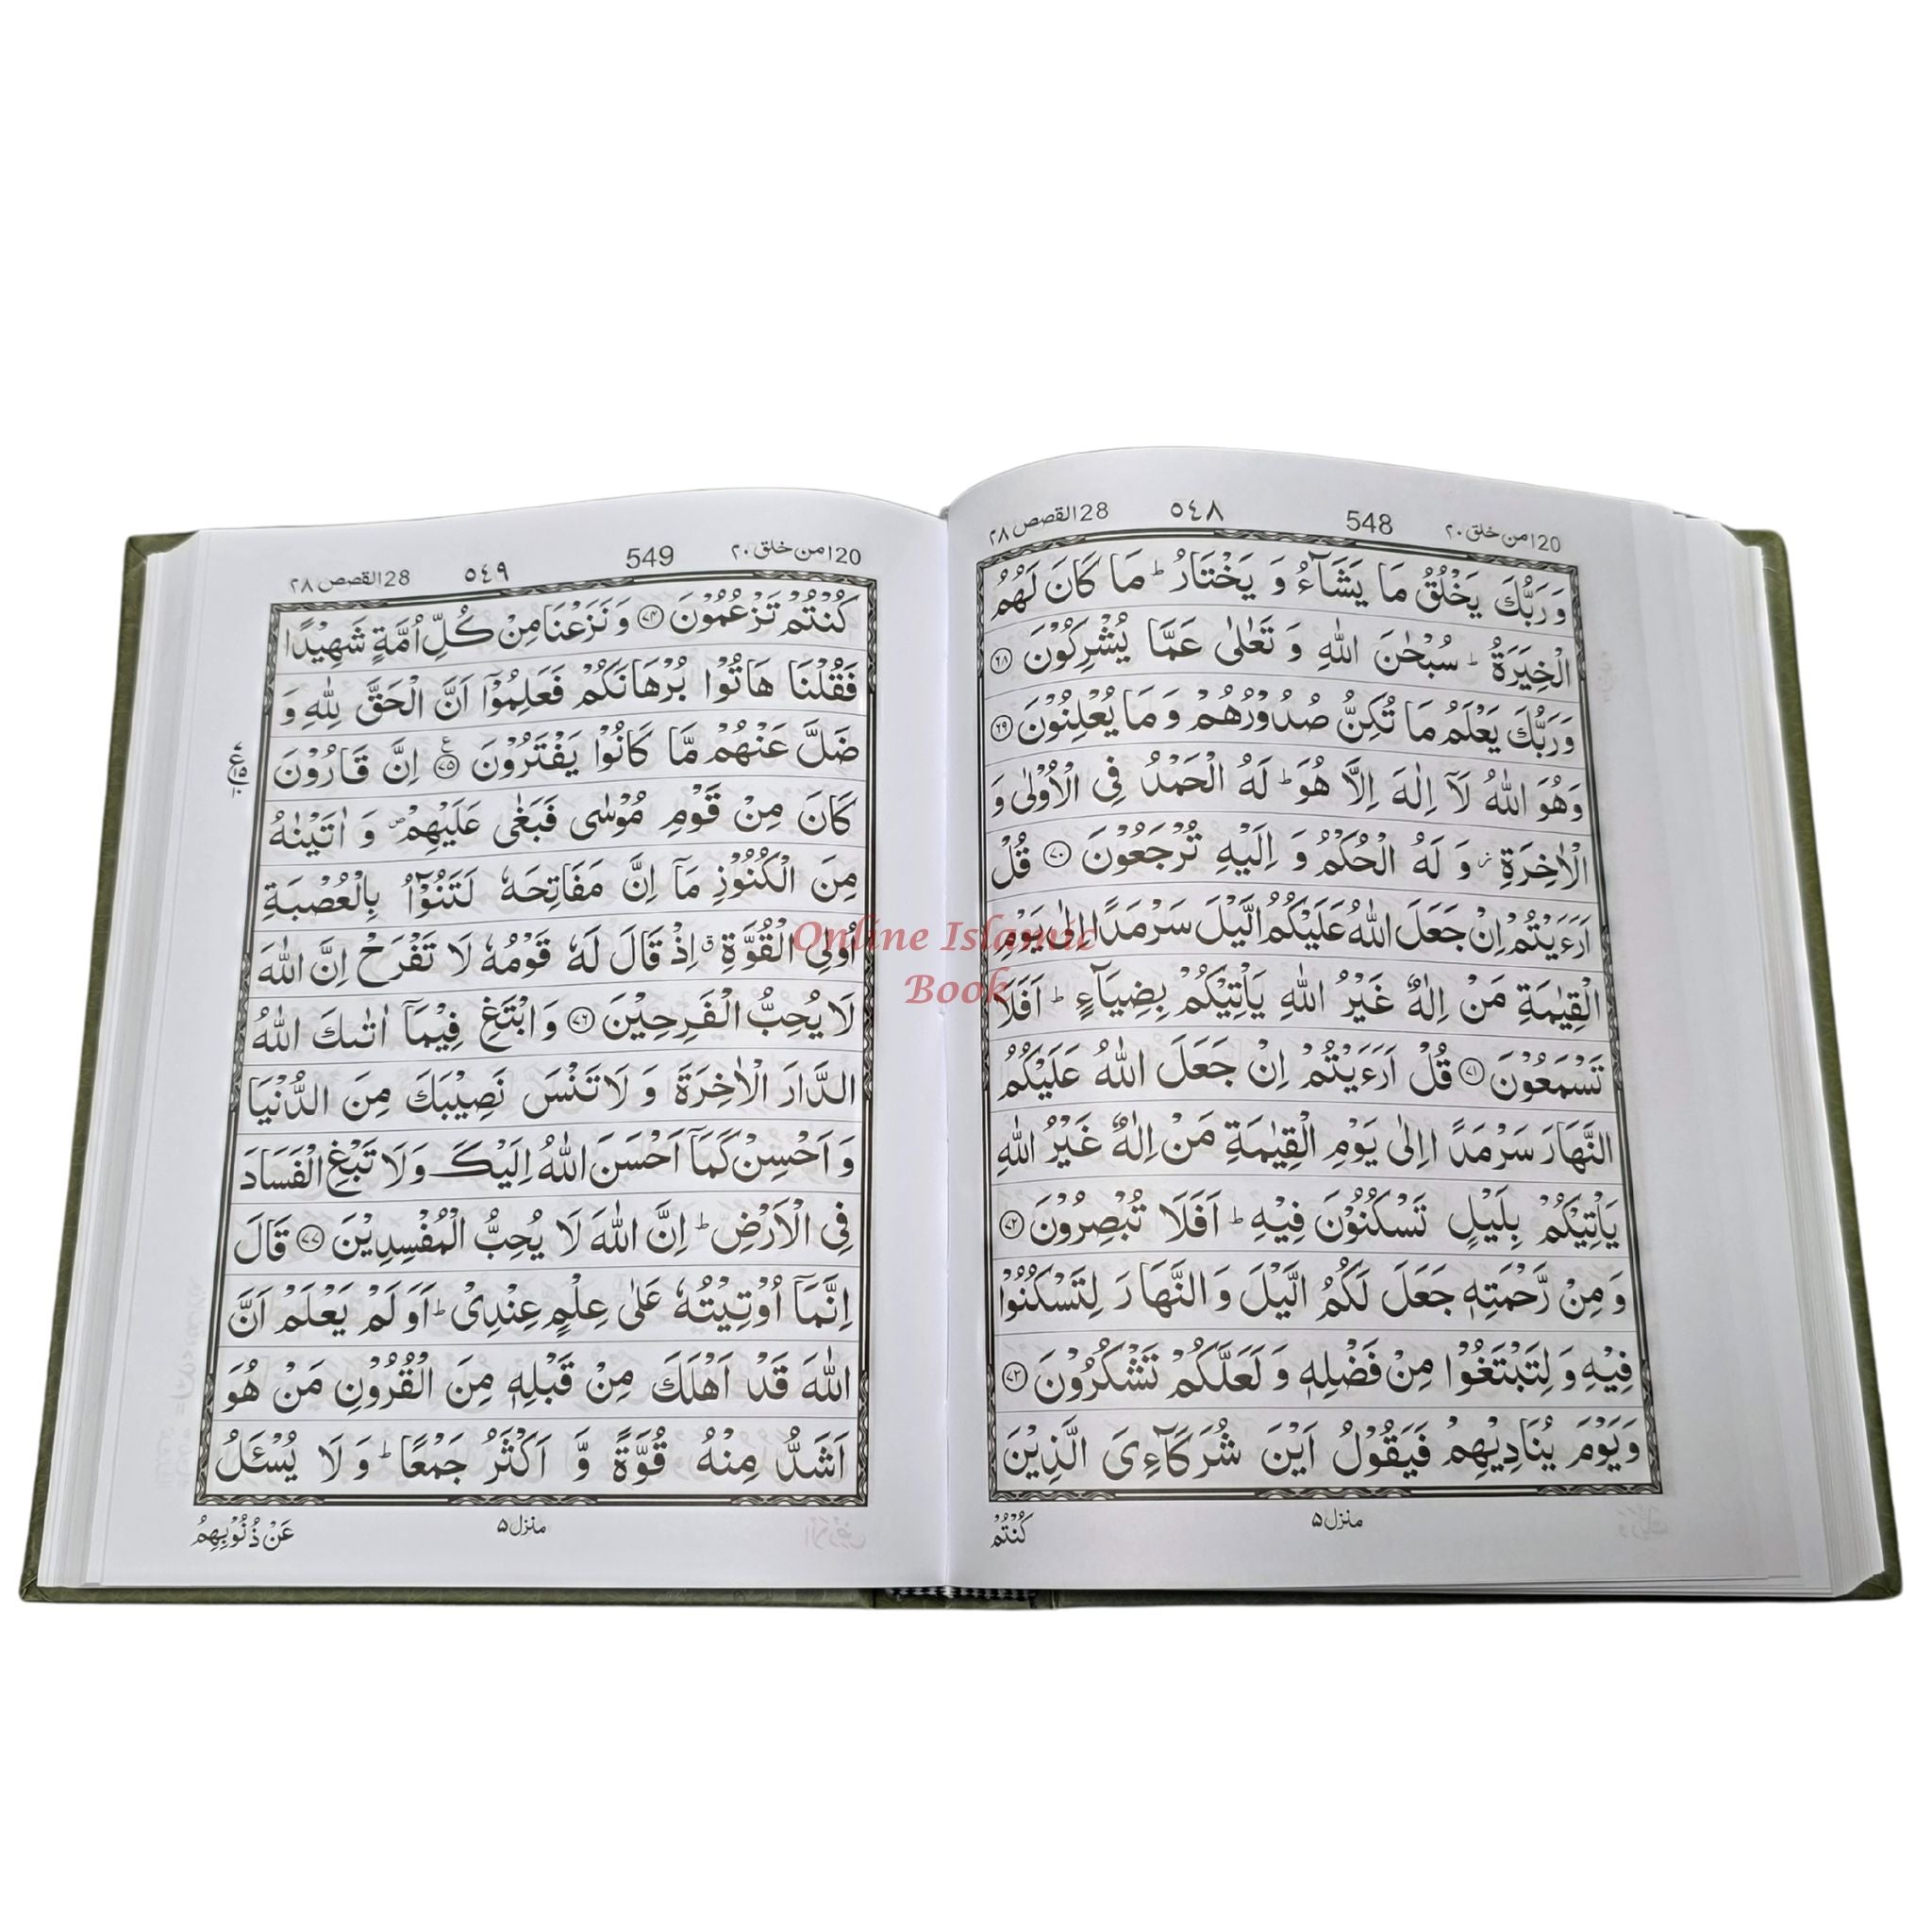 20 امن خلق ۲۰ 548 ٥٤٨ 28 القصص ۲۸
وَرَبُّكَ يَخْلُقُ مَا يَشَآءُ وَ يَخْتَارُ ؕ مَا كَانَ لَهُمُ
الْخِيَرَةُ ؕ سُبْحٰنَ اللّٰهِ وَ تَعٰلٰى عَمَّا يُشْرِكُوْنَ ۶۸
وَرَبُّكَ يَعْلَمُ مَا تُكِنُّ صُدُوْرُهُمْ وَ مَا يُعْلِنُوْنَ ۶۹
وَهُوَ اللّٰهُ لَاۤ اِلٰهَ اِلَّا هُوَ ؕ لَهُ الْحَمْدُ فِی الْاُوْلٰى وَ
الْاٰخِرَةِ ؗ وَ لَهُ الْحُكْمُ وَ اِلَيْهِ تُرْجَعُوْنَ ۷۰ قُلْ
اَرَءَيْتُمْ اِنْ جَعَلَ اللّٰهُ عَلَيْكُمُ الَّيْلَ سَرْمَدًا اِلٰى يَوْمِ
الْقِيٰمَةِ مَنْ اِلٰهٌ غَيْرُ اللّٰهِ يَاْتِيْكُمْ بِضِيَآءٍ ؕ اَفَلَا
تَسْمَعُوْنَ ۷۱ قُلْ اَرَءَيْتُمْ اِنْ جَعَلَ اللّٰهُ عَلَيْكُمُ
النَّهَارَ سَرْمَدًا اِلٰى يَوْمِ الْقِيٰمَةِ مَنْ اِلٰهٌ غَيْرُ اللّٰهِ
يَاْتِيْكُمْ بِلَيْلٍ تَسْكُنُوْنَ فِيْهِ ؕ اَفَلَا تُبْصِرُوْنَ ۷۲
وَ مِنْ رَّحْمَتِهٖ جَعَلَ لَكُمُ الَّيْلَ وَ النَّهَارَ لِتَسْكُنُوْا
فِيْهِ وَ لِتَبْتَغُوْا مِنْ فَضْلِهٖ وَ لَعَلَّكُمْ تَشْكُرُوْنَ ۷۳
وَيَوْمَ يُنَادِيْهِمْ فَيَقُوْلُ اَيْنَ شُرَكَآءِیَ الَّذِيْنَ
منزل ۵
كُنْتُمْ
20 امن خلق ۲۰ 549 ٥٤٩ 28 القصص ۲۸
كُنْتُمْ تَزْعُمُوْنَ ۷۴ وَ نَزَعْنَا مِنْ كُلِّ اُمَّةٍ شَهِيْدًا
فَقُلْنَا هَاتُوْا بُرْهَانَكُمْ فَعَلِمُوْۤا اَنَّ الْحَقَّ لِلّٰهِ وَ
ضَلَّ عَنْهُمْ مَّا كَانُوْا يَفْتَرُوْنَ ۷۵ اِنَّ قَارُوْنَ
كَانَ مِنْ قَوْمِ مُوْسٰى فَبَغٰى عَلَيْهِمْ ۪ وَ اٰتَيْنٰهُ
مِنَ الْكُنُوْزِ مَاۤ اِنَّ مَفَاتِحَهٗ لَتَنُوْٓاُ بِالْعُصْبَةِ
اُولِی الْقُوَّةِ ۗ اِذْ قَالَ لَهٗ قَوْمُهٗ لَا تَفْرَحْ اِنَّ اللّٰهَ
لَا يُحِبُّ الْفَرِحِيْنَ ۷۶ وَ ابْتَغِ فِيْمَاۤ اٰتٰىكَ اللّٰهُ
الدَّارَ الْاٰخِرَةَ وَ لَا تَنْسَ نَصِيْبَكَ مِنَ الدُّنْيَا
وَ اَحْسِنْ كَمَاۤ اَحْسَنَ اللّٰهُ اِلَيْكَ وَ لَا تَبْغِ الْفَسَادَ
فِی الْاَرْضِ ؕ اِنَّ اللّٰهَ لَا يُحِبُّ الْمُفْسِدِيْنَ ۷۷ قَالَ
اِنَّمَاۤ اُوْتِيْتُهٗ عَلٰى عِلْمٍ عِنْدِیْ ؕ اَوَ لَمْ يَعْلَمْ اَنَّ
اللّٰهَ قَدْ اَهْلَكَ مِنْ قَبْلِهٖ مِنَ الْقُرُوْنِ مَنْ هُوَ
اَشَدُّ مِنْهُ قُوَّةً وَّ اَكْثَرُ جَمْعًا ؕ وَ لَا يُسْـَٔلُ
منزل ۵
عَنْ ذُنُوْبِهِمُ
Online Islamic
Book